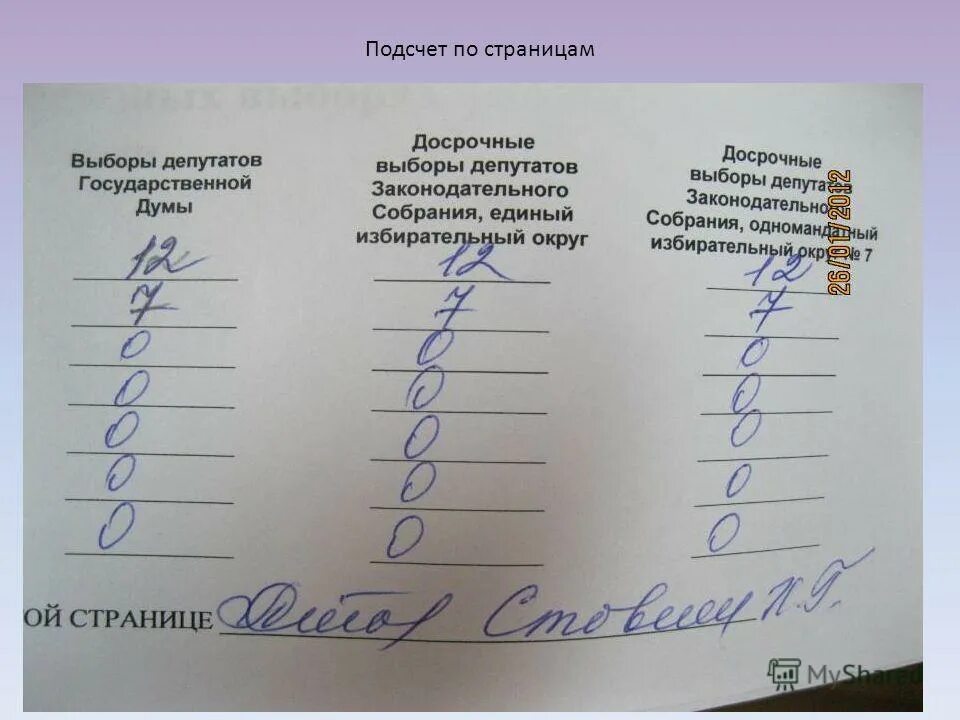 Подсчет по страницам
Выборы депутатов
Государственной
Думы
12
7
0
0
0
0
0
Досрочные
выборы депутатов
Законодательного
Собрания, единый
избирательный округ
12
7
0
0
0
0
0
Досрочные
выборы депутатов
Законодательно
Собрания, одномандатный
избирательный округ № 7
12
7
0
0
0
0
0
26/01/2012
ОЙ СТРАНИЦЕ
MyShared